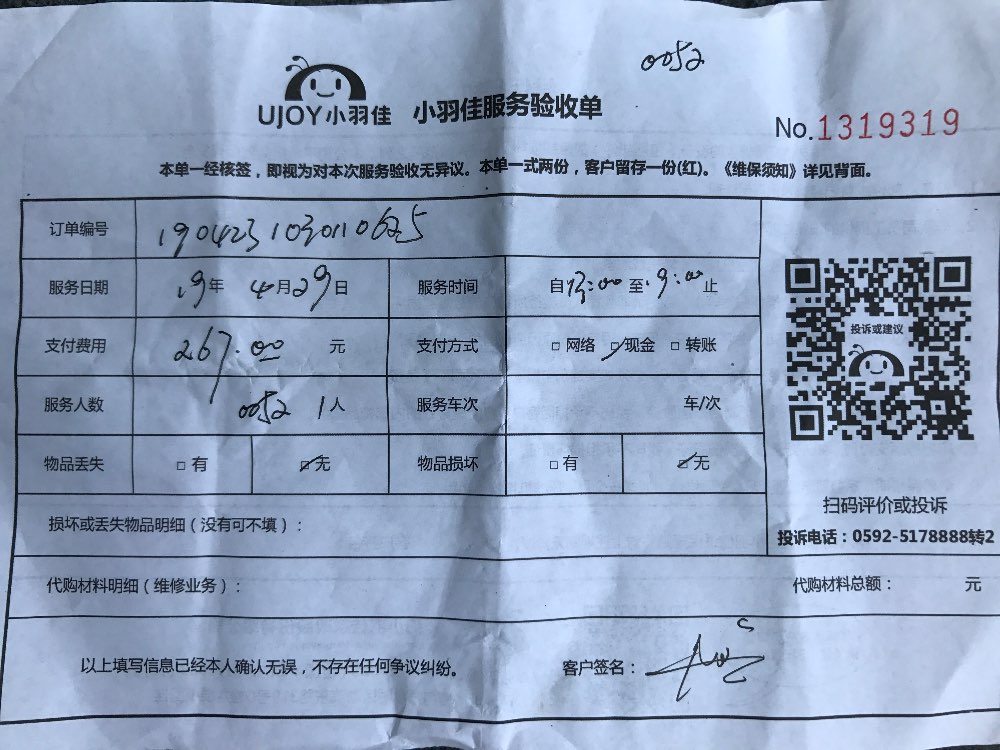 0052
UJOY小羽佳 小羽佳服务验收单
No.1319319
本单一经核签，即视为对本次服务验收无异议。本单一式两份，客户留存一份(红)。《维保须知》详见背面。
订单编号 1904231030110625
服务日期 19年 4月29日 服务时间 自 至 止
支付费用 267.00 元 支付方式 □ 网络 ☑现金 □ 转账
投诉或建议
服务人数 0052 1人 服务车次 车/次
物品丢失 □ 有 ☑无 物品损坏 □ 有 ☑无
扫码评价或投诉
损坏或丢失物品明细（没有可不填）：
投诉电话：0592-5178888转2
代购材料明细（维修业务）： 代购材料总额： 元
以上填写信息已经本人确认无误，不存在任何争议纠纷。 客户签名：